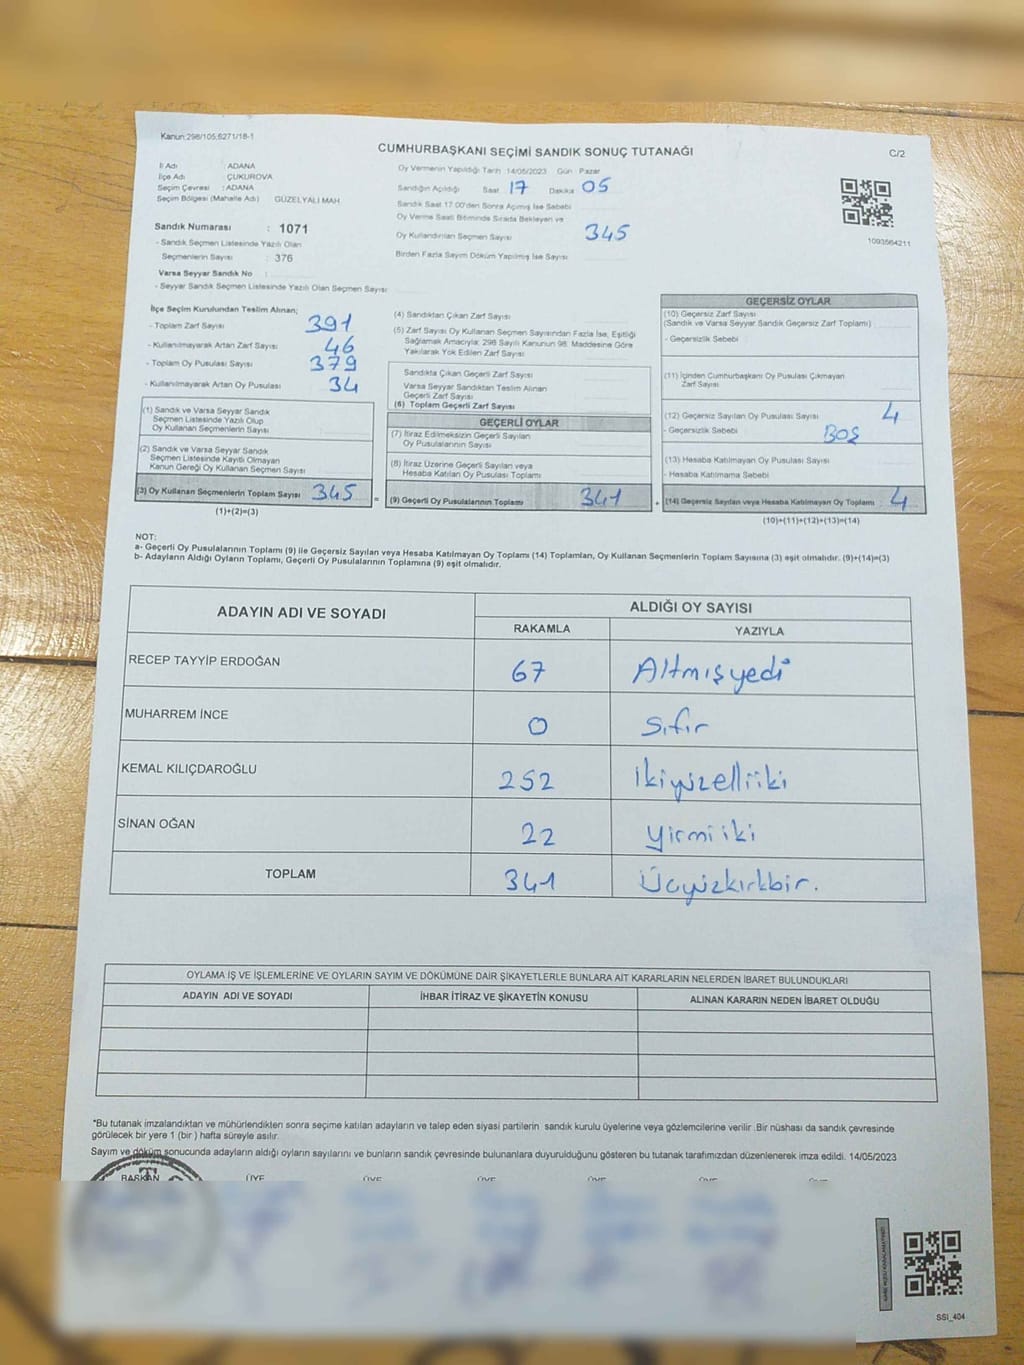 Kanun:298/105,6271/18-1
CUMHURBAŞKANI SEÇİMİ SANDIK SONUÇ TUTANAĞI
C/2
İl Adı : ADANA
İlçe Adı : ÇUKUROVA
Seçim Çevresi : ADANA
Seçim Bölgesi (Mahalle Adı) GÜZELYALI MAH.
Sandık Numarası : 1071
- Sandık Seçmen Listesinde Yazılı Olan
Seçmenlerin Sayısı : 376
Varsa Seyyar Sandık No :
- Seyyar Sandık Seçmen Listesinde Yazılı Olan Seçmen Sayısı:
Oy Vermenin Yapıldığı Tarih 14/05/2023 Gün : Pazar
Sandığın Açıldığı Saat 17 Dakika 05
Sandık Saat 17:00'den Sonra Açılmış İse Sebebi
Oy Verme Saati Bitiminde Sırada Bekleyen ve
Oy Kullandırılan Seçmen Sayısı 345
Birden Fazla Sayım Döküm Yapılmış İse Sayısı
1093564211
İlçe Seçim Kurulundan Teslim Alınan;
- Toplam Zarf Sayısı 391
- Kullanılmayarak Artan Zarf Sayısı 46
- Toplam Oy Pusulası Sayısı 379
- Kullanılmayarak Artan Oy Pusulası 34
(1) Sandık ve Varsa Seyyar Sandık
Seçmen Listesinde Yazılı Olup
Oy Kullanan Seçmenlerin Sayısı
(2) Sandık ve Varsa Seyyar Sandık
Seçmen Listesinde Kayıtlı Olmayan
Kanun Gereği Oy Kullanan Seçmen Sayısı
(3) Oy Kullanan Seçmenlerin Toplam Sayısı 345
(1)+(2)=(3)
(4) Sandıktan Çıkan Zarf Sayısı
(5) Zarf Sayısı Oy Kullanan Seçmen Sayısından Fazla İse, Eşitliği
Sağlamak Amacıyla; 298 Sayılı Kanunun 98. Maddesine Göre
Yakılarak Yok Edilen Zarf Sayısı
Sandıkta Çıkan Geçerli Zarf Sayısı
Varsa Seyyar Sandıktan Teslim Alınan
Geçerli Zarf Sayısı
(6) Toplam Geçerli Zarf Sayısı
GEÇERLİ OYLAR
(7) İtiraz Edilmeksizin Geçerli Sayılan
Oy Pusulalarının Sayısı
(8) İtiraz Üzerine Geçerli Sayılan veya
Hesaba Katılan Oy Pusulası Toplamı
= (9) Geçerli Oy Pusulalarının Toplamı 341
GEÇERSİZ OYLAR
(10) Geçersiz Zarf Sayısı
(Sandık ve Varsa Seyyar Sandık Geçersiz Zarf Toplamı)
- Geçersizlik Sebebi
(11) İçinden Cumhurbaşkanı Oy Pusulası Çıkmayan
Zarf Sayısı
(12) Geçersiz Sayılan Oy Pusulası Sayısı 4
- Geçersizlik Sebebi BOŞ
(13) Hesaba Katılmayan Oy Pusulası Sayısı
- Hesaba Katılmama Sebebi
+ (14) Geçersiz Sayılan veya Hesaba Katılmayan Oy Toplamı 4
(10)+(11)+(12)+(13)=(14)
NOT:
a- Geçerli Oy Pusulalarının Toplamı (9) ile Geçersiz Sayılan veya Hesaba Katılmayan Oy Toplamı (14) Toplamları, Oy Kullanan Seçmenlerin Toplam Sayısına (3) eşit olmalıdır. (9)+(14)=(3)
b- Adayların Aldığı Oyların Toplamı, Geçerli Oy Pusulalarının Toplamına (9) eşit olmalıdır.
ADAYIN ADI VE SOYADI ALDIĞI OY SAYISI
RAKAMLA YAZIYLA
RECEP TAYYİP ERDOĞAN 67 Altmışyedi
MUHARREM İNCE 0 Sıfır
KEMAL KILIÇDAROĞLU 252 İkiyüzelliiki
SİNAN OĞAN 22 yirmiiki
TOPLAM 341 Üçyüzkırkbir.
OYLAMA İŞ VE İŞLEMLERİNE VE OYLARIN SAYIM VE DÖKÜMÜNE DAİR ŞİKAYETLERLE BUNLARA AİT KARARLARIN NELERDEN İBARET BULUNDUKLARI
ADAYIN ADI VE SOYADI İHBAR İTİRAZ VE ŞİKAYETİN KONUSU ALINAN KARARIN NEDEN İBARET OLDUĞU
*Bu tutanak imzalandıktan ve mühürlendikten sonra seçime katılan adayların ve talep eden siyasi partilerin sandık kurulu üyelerine veya gözlemcilerine verilir .Bir nüshası da sandık çevresinde
görülecek bir yere 1 (bir ) hafta süreyle asılır.
Sayım ve döküm sonucunda adayların aldığı oyların sayılarını ve bunların sandık çevresinde bulunanlara duyurulduğunu gösteren bu tutanak tarafımızdan düzenlenerek imza edildi. 14/05/2023
BAŞKAN ÜYE ÜYE ÜYE ÜYE ÜYE
SSI_404